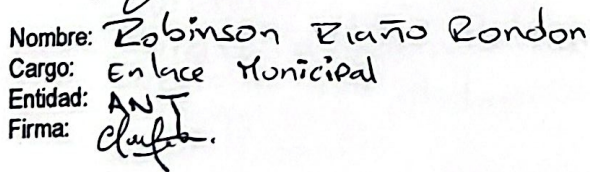 Nombre: Robinson Riaño Rondon
Cargo: Enlace Municipal
Entidad: ANT
Firma: